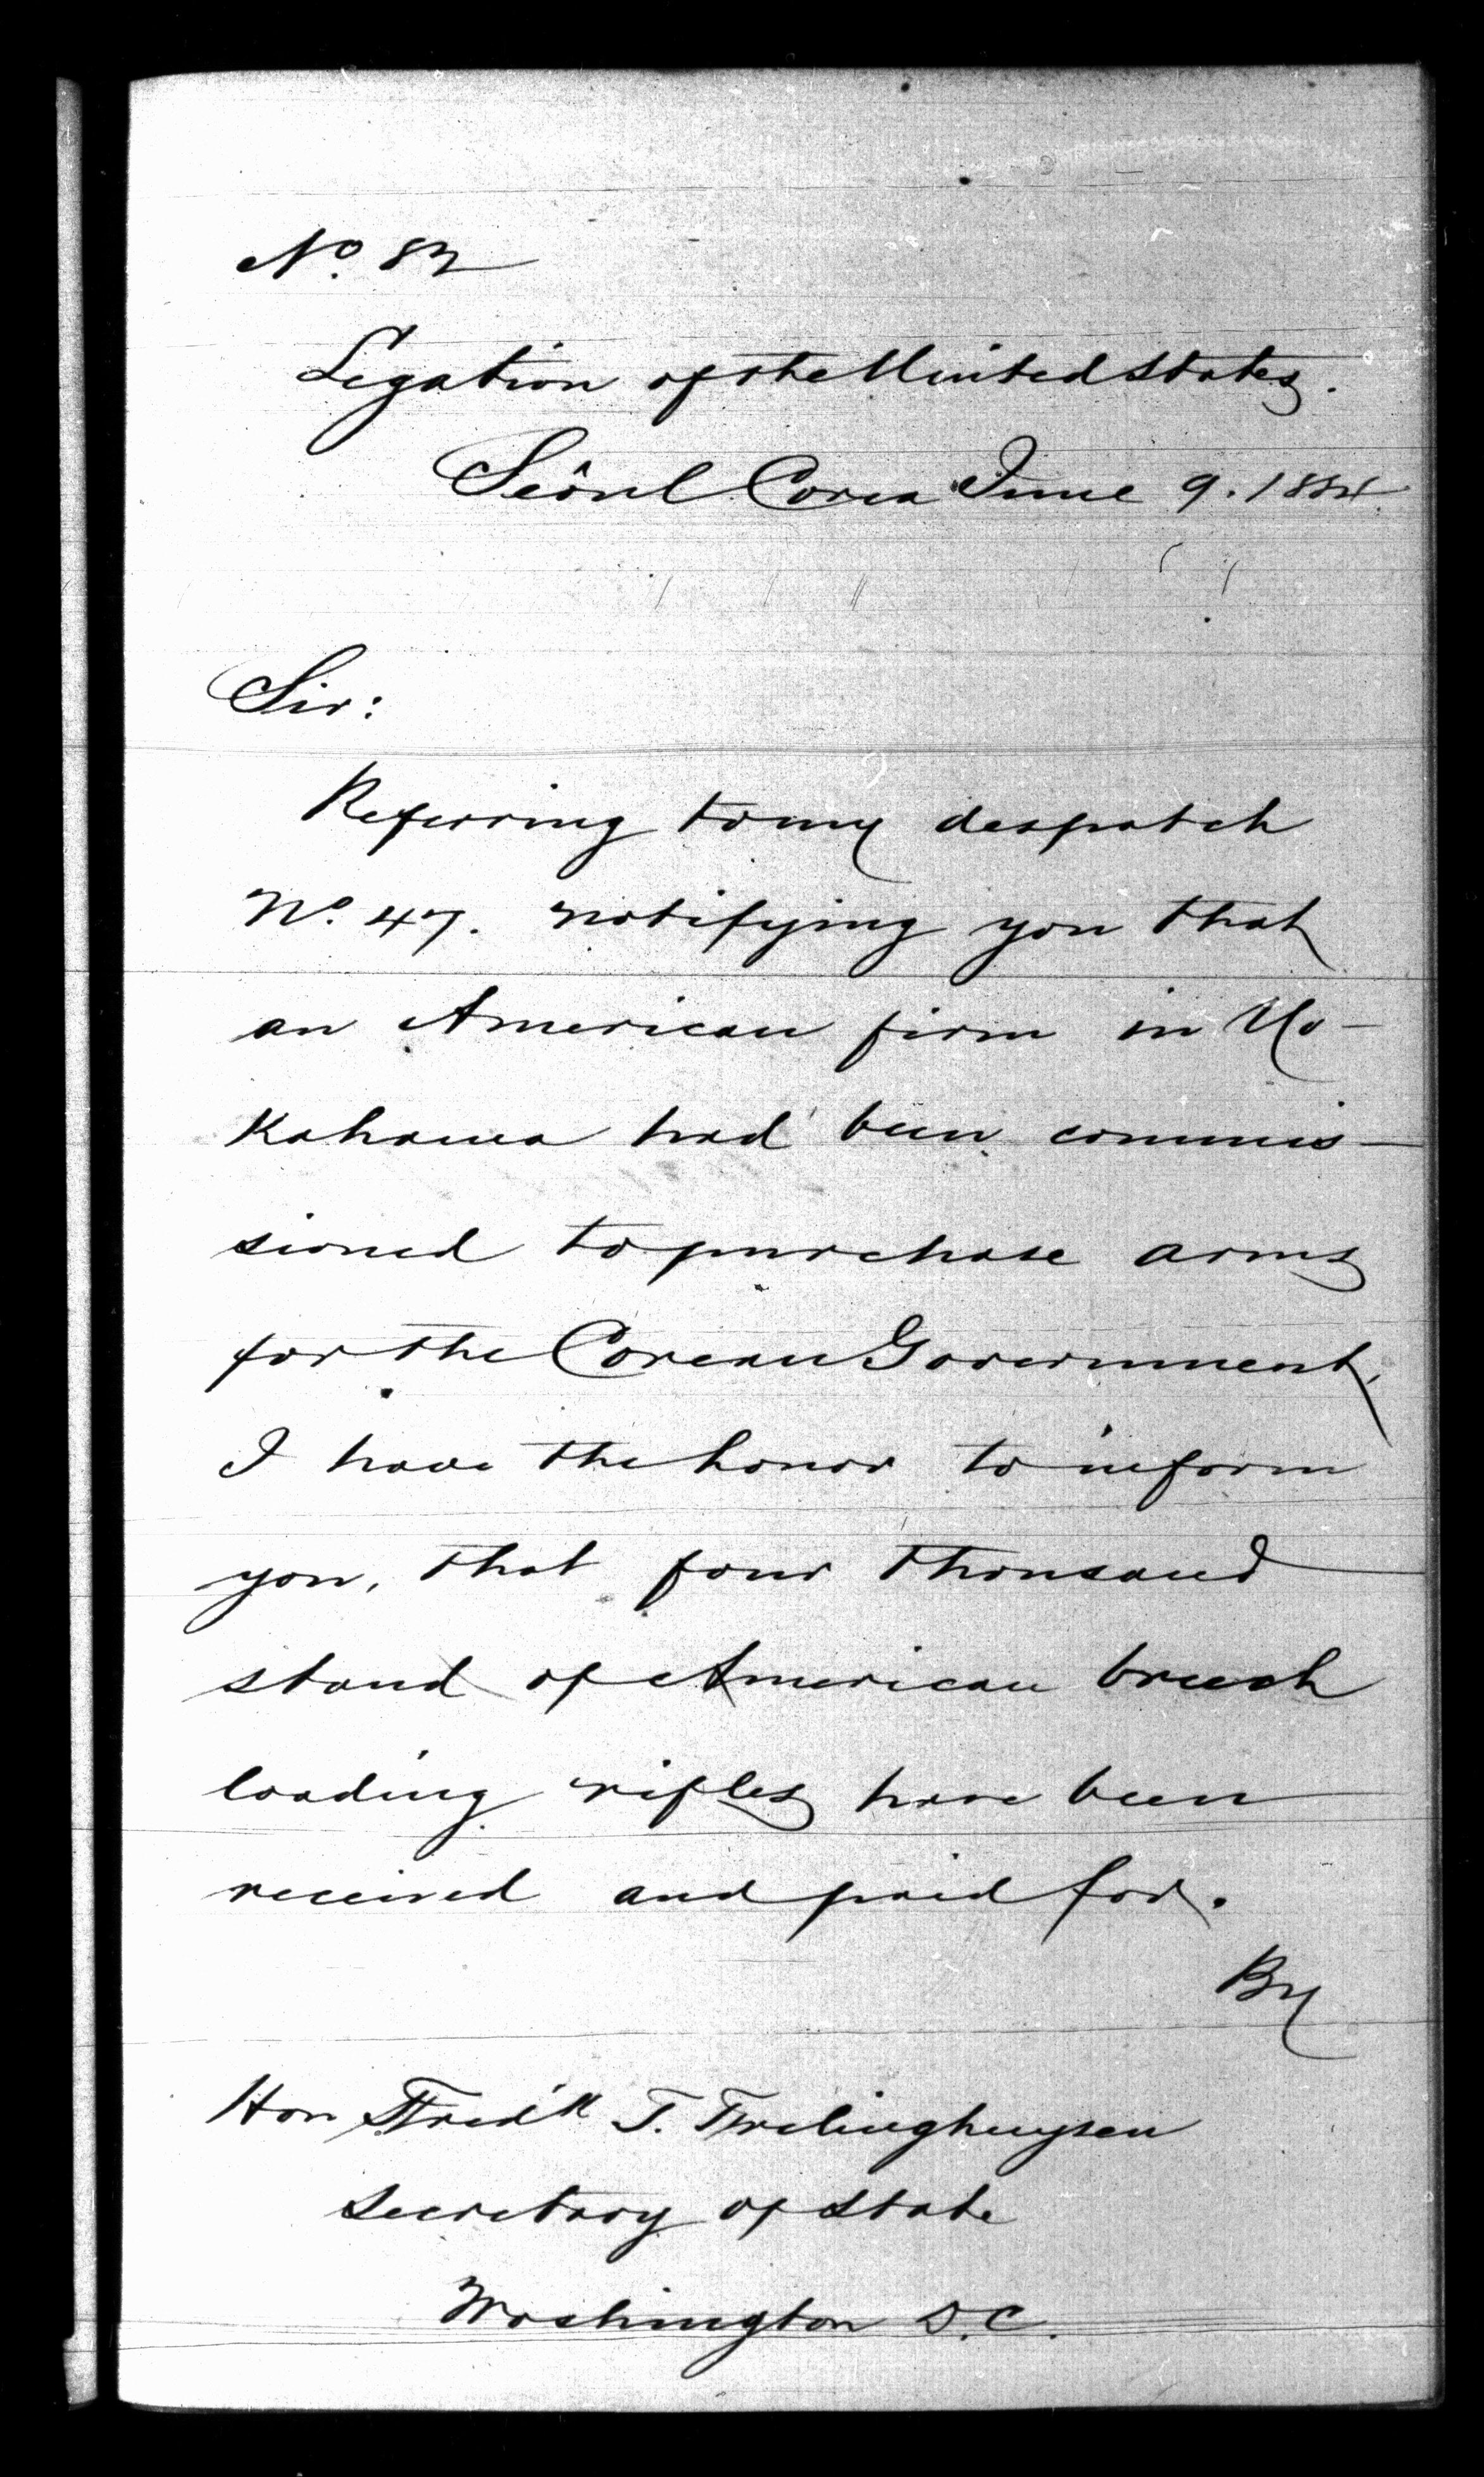 No. 82
Legation of the United States.
Seôul Corea June 9. 1884.
Sir:
Referring to my despatch
No. 47. notifying you that
an American firm in Yo-
kahama had been commis-
sioned to purchase arms
for the Corean Government,
I have the honor to inform
you, that four thousand
stand of American breech
loading rifles have been
received and paid for.
By
Hon Fred'k T. Frelinghuysen
Secretary of State
Washington D.C.